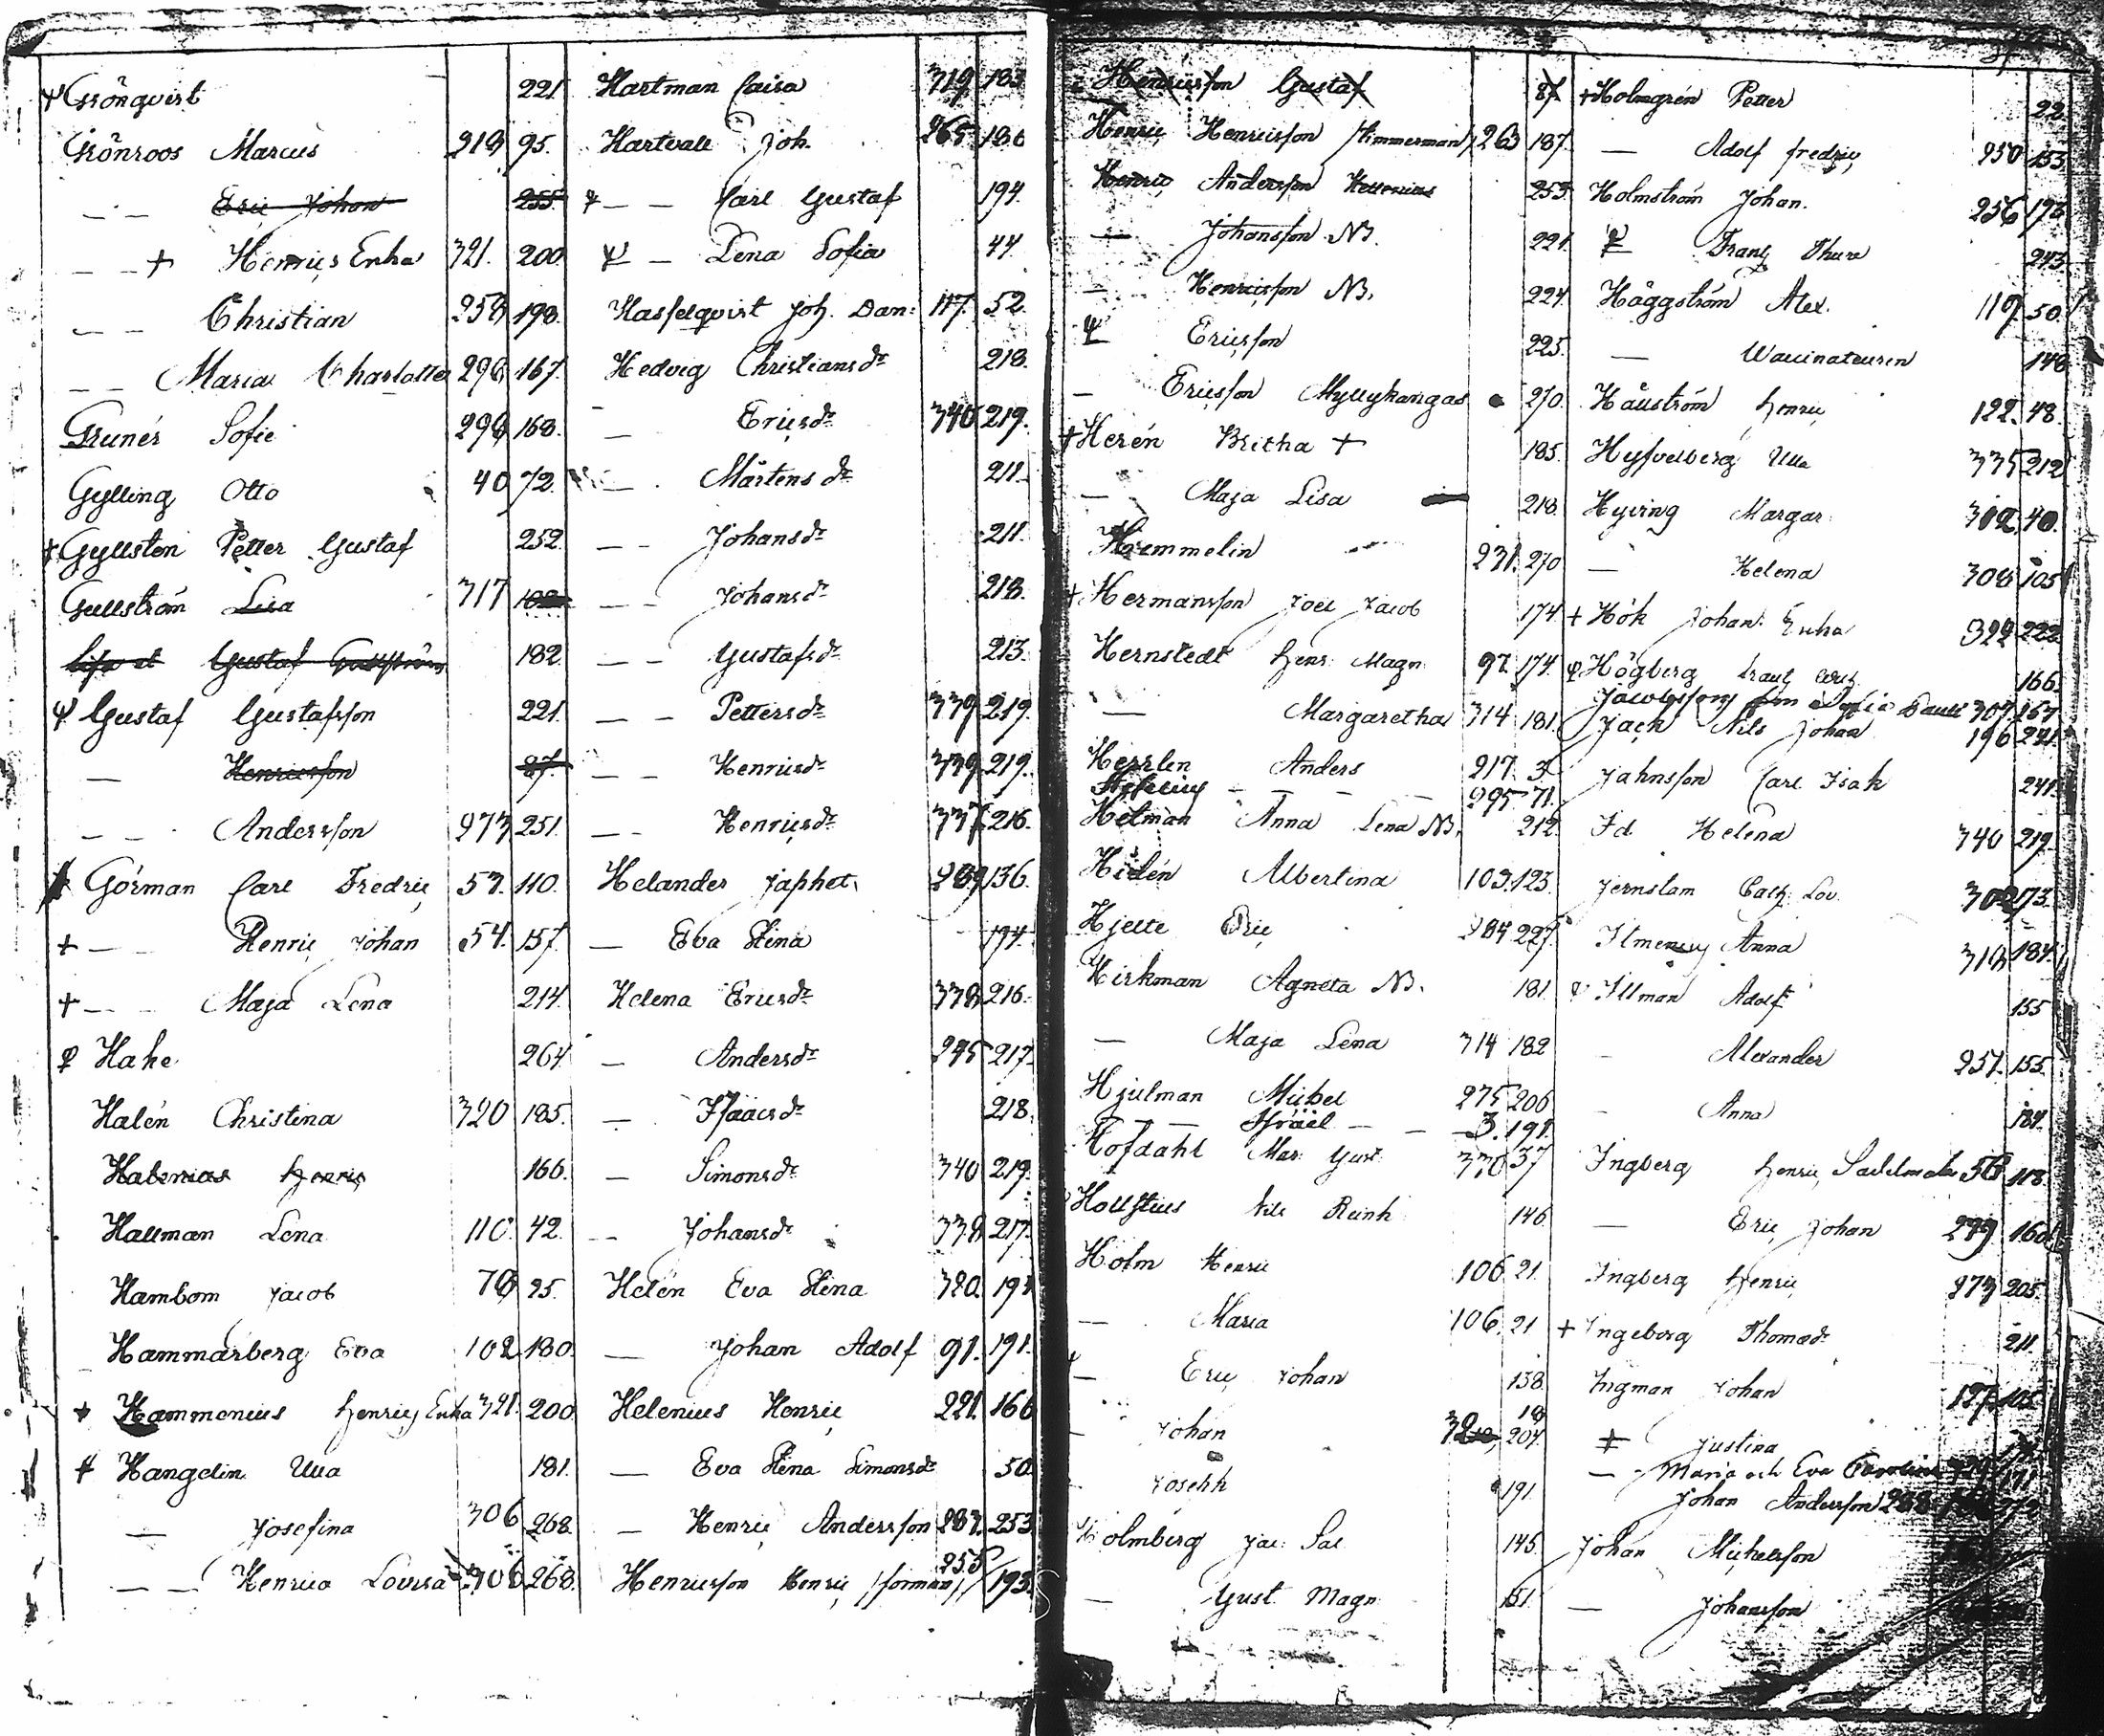 Grönqvist 221.
Grönroos Marcus 218 95.
— — Eric Johan 255.
— — + Henrics Enka 321. 200
— — Christian 258 198.
— — Maria Charlotta 296 167.
Grunér Sofie 296 168.
Gylling Otto 40 72.
+ Gyllsten Petter Gustaf 252.
Gullström Lisa 317
Lisa et Gustaf 182.
Gustaf Gustafsson 221.
— Henricsson 87.
— — Andersson 273 251.
Görman Carl Fredric 53. 110.
+ — — Henric Johan 54. 157.
+ — — Maja Lena 214.
Hake 264.
Halén Christina 320 185.
Halenius Henric 166.
Hallman Lena 110. 42.
Hambom Jacob 78 25.
Hammarberg Eva 102 180.
+ Hammenius Henrics Enka 321. 200
Hangelin Ulla 181.
— Josefina 306 268.
— — Henrica Lovisa 306 268.
Hartman Caisa 319 183
Hartvall Joh. 265 186
— — Carl Gustaf 194.
— Lena Sofia 44.
Hasselqvist Joh. Dan: 117. 52.
Hedvig Christiansdr 218.
— Ericsdr 340 219.
— Mårtensdr 211.
— — Johansdr 211.
— — Johansdr 218.
— — Gustafsdr 213.
— — Pettersdr 339 219.
— — Henricsdr 339 219.
— — Henricsdr 337 216.
Helander Japhet 136.
— Eva Stina 194.
Helena Ericsdr 338 216.
— Andersdr 295 217.
— Isaacsdr 218.
— Simonsdr 340 219.
— — Johansdr 338 217.
Helén Eva Stina 320. 193
— Johan Adolf 91. 191.
Helenius Henric 221. 166
— Eva Stina Simonsdr 50.
— Henric Andersson 283. 253
Henricsson Henric 255 193.
Henricsson Gustaf 87
Henric Henricsson /Timmerman/ 263 187.
Henric Andersson 253.
— Johansson NB. 221.
— Henricsson NB. 224.
Ericsson 225.
— Ericsson Myllykangas 270.
+ Herén Britha + 185.
— Maja Lisa 218.
Hemmelin 231. 270
+ Hermansson Joel Jacob 174.
Hernstedt Henr. Magn. 97. 174.
— Margaretha 314 181.
Herrlin Anders 217. 3
— — — 295 71.
Hetman Anna Lena NB. 212.
Hidén Albertina 103. 123.
Hjelte Eric 227.
Hirkman Agneta NB. 181.
— Maja Lena 314 182
Hjulman Michel 275 206
— — Israel — — 3. 191.
Hofdahl Mar. Gust. 330 37
Nils Reinh 146
Holm Henric 106 21.
— Maria 106. 21
— Eric Johan 138.
— Johan 204.
— Joseph 191.
Holmberg Jac. Sal. 145.
— Gust. Magn. 151.
+ Holmgrén Petter 22.
— Adolf Fredric 250 153.
Holmström Johan. 256 173
Frans Thure 243.
Häggström Alex. 119 50.
— Vaccinateuren 148
Hällström Henric 122. 48.
Ulla 335 212
Hyving Margar. 312. 40.
— Helena 308 105
+ Hök Johan: Enka 322 222.
Högberg 166.
307. 267
Jack Nils Johan 196 241.
Jahnsson Carl Isak 241.
Id Helena 340 219.
Jernstam Cath: Lov. 302 173.
Anna 318 184.
Illman Adolf 155
— Alexander 251. 155.
— Anna 184.
Ingberg Henric 56 118.
— Eric Johan 299 160.
Ingberg Henric 273 205.
+ Ingeborg Thomasdr 211.
Ingman Johan 127. 105.
Justina
— Maria och Eva Carolina
Johan Andersson
Johan Michelsson
— Johansson